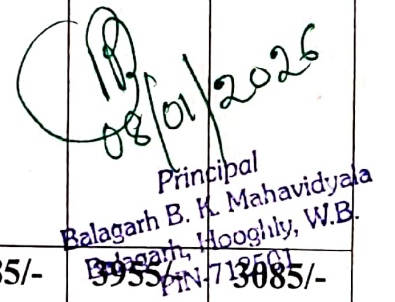 08/01/2026
Principal
Balagarh B. K. Mahavidyala
Balagarh, Hooghly, W.B.
PIN-712501
5/- 3955/- 3085/-